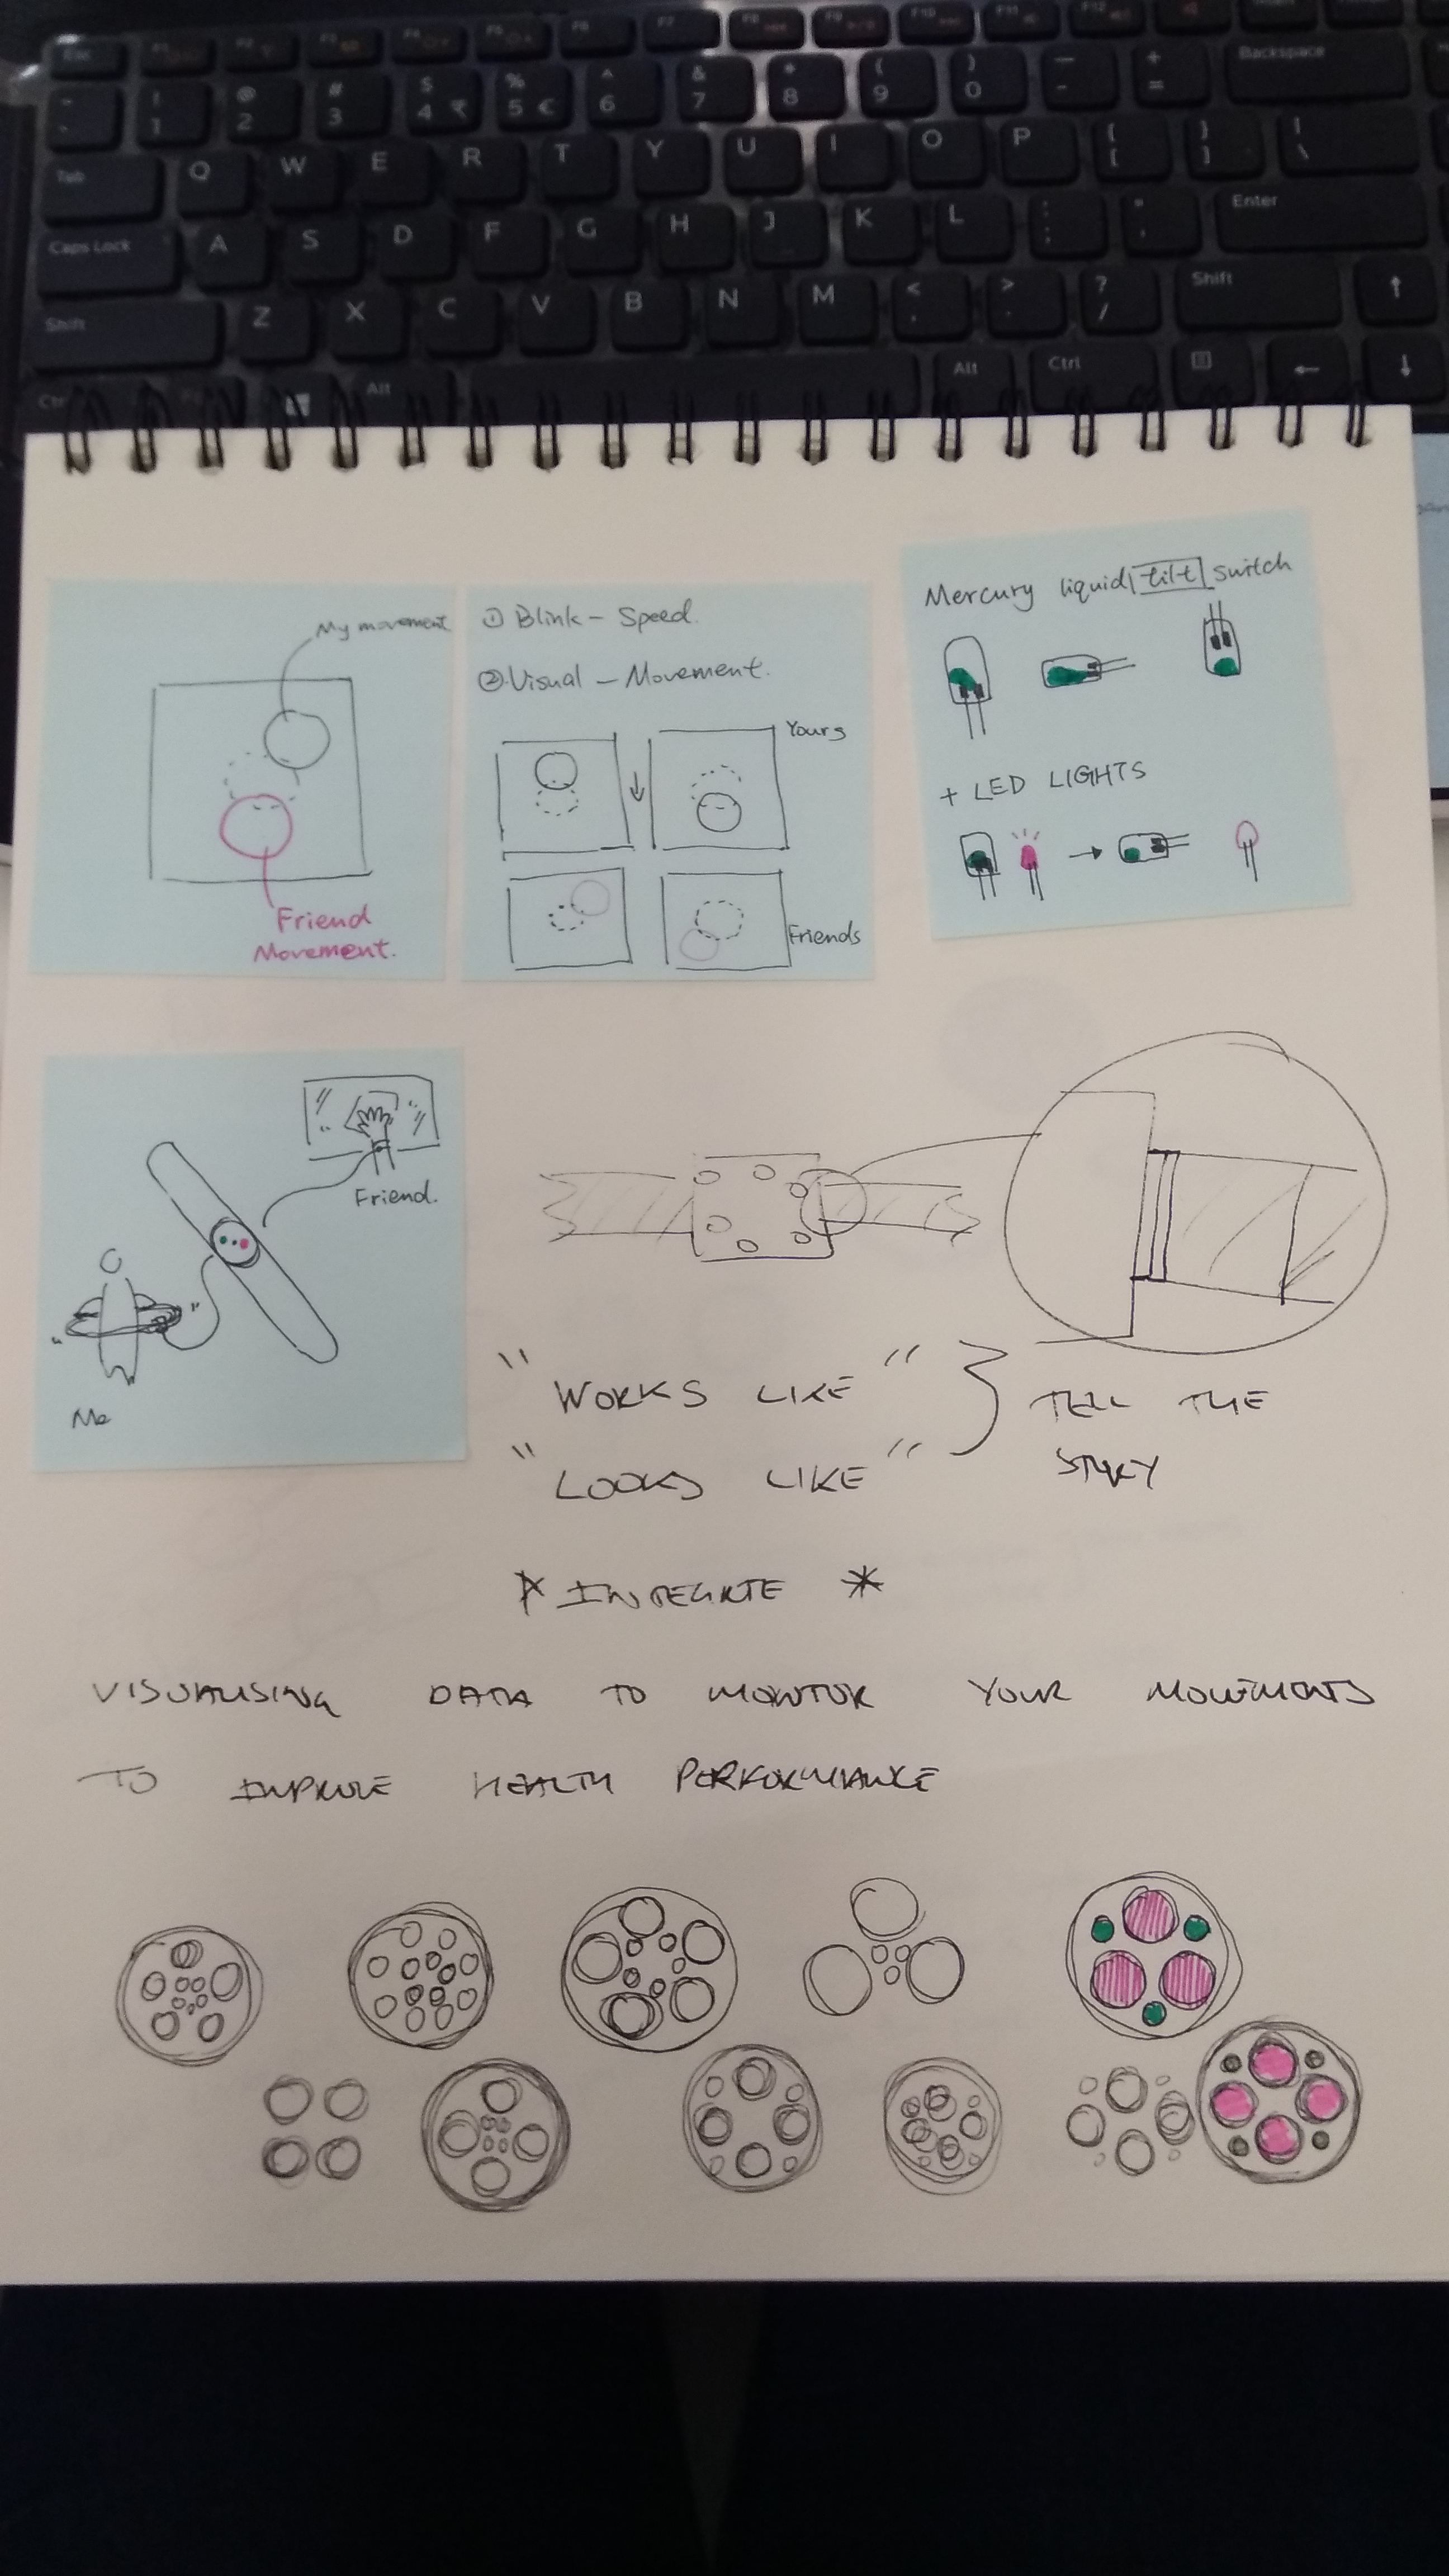 Esc F1 F2 F3 F4 F5 F6 F7 F8 F9 F10 F11 F12
~ ` ! 1 @ 2 # 3 $ 4 ₹ % 5 € ^ 6 & 7 * 8 ( 9 ) 0 _ - + = Backspace
Tab Q W E R T Y U I O P { [ } ] | \
Caps Lock A S D F G H J K L : ; " ' Enter
Shift Z X C V B N M < , > . ? / Shift ↑
Ctrl Alt Alt Ctrl ← ↓
My movement
Friend
Movement.
① Blink – Speed.
② Visual – Movement.
Yours
Friends
Mercury liquid tilt switch
+ LED LIGHTS
Friend.
Me
"WORKS LIKE" } TELL THE
"LOOKS LIKE" STORY
* INTEGRATE *
VISUALISING DATA TO MONITOR YOUR MOVEMENTS
TO IMPROVE HEALTH PERFORMANCE